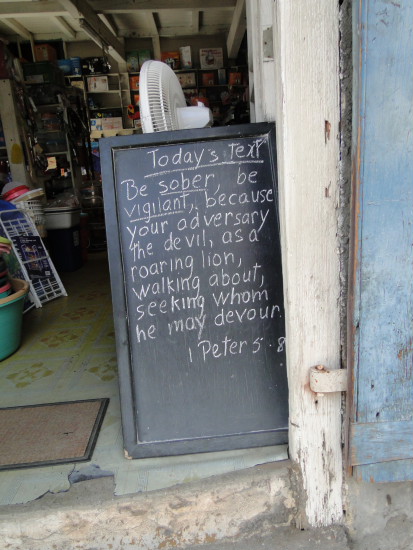 Today's text
Be sober, be
vigilant, because
your adversary
the devil, as a
roaring lion,
walking about,
seeking whom
he may devour.
1 Peter 5.8